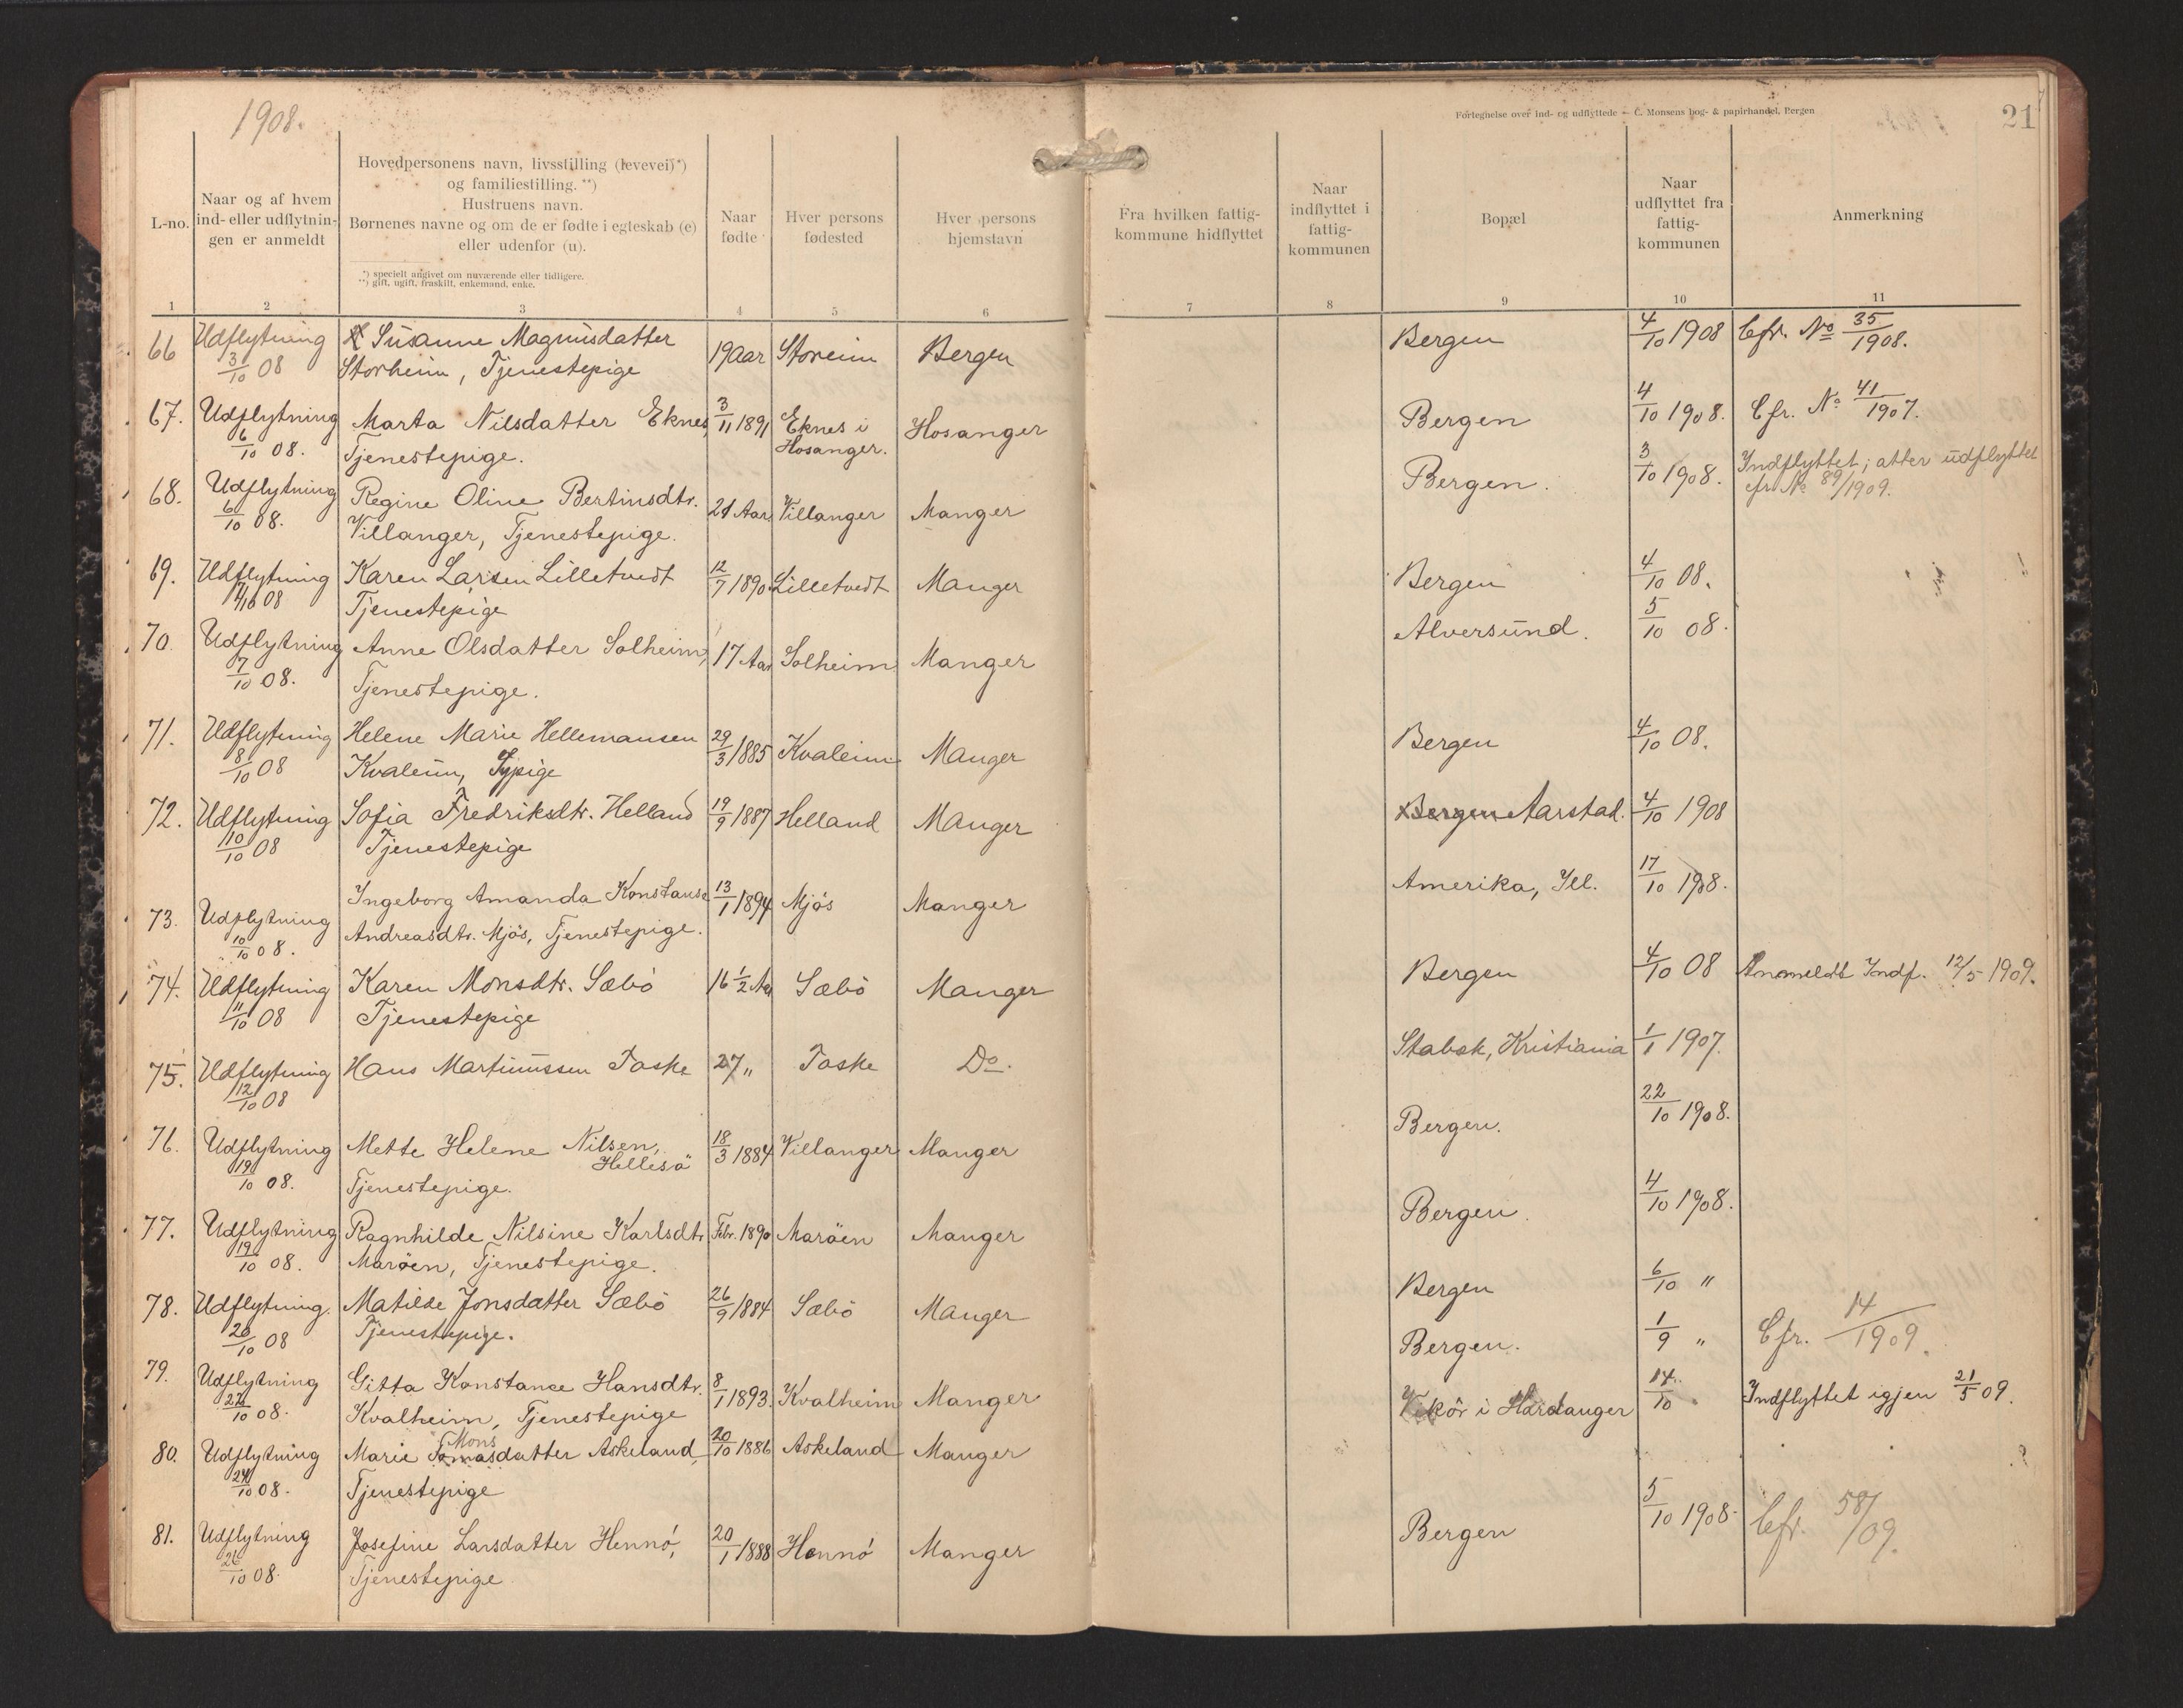 1908.
Fortegnelse over ind- og udflyttede — C. Monsens bog- & papirhandel, Bergen
21
L-no.
Naar og af hvem
ind- eller udflytnin-
gen er anmeldt
Hovedpersonens navn, livsstilling (levevei)*)
og familiestilling. **)
Hustruens navn.
Børnenes navne og om de er fødte i egteskab (e)
eller udenfor (u).
*) specielt angivet om nuværende eller tidligere.
**) gift, ugift, fraskilt, enkemand, enke.
Naar
fødte
Hver persons
fødested
Hver persons
hjemstavn
Fra hvilken fattig-
kommune hidflyttet
Naar
indflyttet i
fattig-
kommunen
Bopæl
Naar
udflyttet fra
fattig-
kommunen
Anmerkning
1 2 3 4 5 6 7 8 9 10 11
66 Udflytning Susanne Magnusdatter 19 Aar Storeim Bergen Bergen 4/10 1908 Cfr. No 35/1908.
3/10 08 Storheim, Tjenestepige
67. Udflytning Marta Nilsdatter Eknes, 3/11 1891 Eknes i Hosanger Bergen 4/10 1908. Cfr. No 41/1907.
6/10 08. Tjenestepige. Hosanger.
68. Udflytning Regine Oline Bertinsdtr. 21 Aar Villanger Manger Bergen. 3/10 1908. Indflyttet; atter udflyttet
6/10 08. Villanger, Tjenestepige. cfr. No 89/1909.
69. Udflytning Karen Larsen Lilletvedt 12/7 1890 Lilletvedt Manger Bergen 4/10 08.
7/10 08 Tjenestepige
70. Udflytning Anne Olsdatter Solheim, 17 Aar Solheim Manger Alversund. 5/10 08.
7/10 08. Tjenestepige.
71. Udflytning Helene Marie Hellemansen 29/3 1885 Kvaleim Manger Bergen 4/10 08.
8/10 08 Kvaleim, Sypige
72. Udflytning Sofia Fredriksdtr. Helland 19/9 1887 Helland Manger Bergen Aarstad. 4/10 1908
10/10 08 Tjenestepige
73. Udflytning Ingeborg Amanda Konstanse 13/1 1894 Mjös Manger Amerika, Ill. 17/10 1908.
10/10 08. Andreasdtr. Mjös, Tjenestepige.
74. Udflytning Karen Monsdtr. Sæbö 16 1/2 Aar Sæbö Manger Bergen 4/10 08 Anmeldt Indf. 12/5 1909.
11/10 08 Tjenestepige
75. Udflytning Hans Martinussen Toske 27 " Toske Do. Stabæk, Kristiania 1/1 1907.
12/10 08
76. Udflytning Mette Helene Nilsen, 18/3 1884 Villanger Manger Bergen. 22/10 1908.
Hellesö
19/10 08. Tjenestepige.
77. Udflytning Ragnhilde Nilsine Karlsdtr Febr. 1890 Maröen Manger Bergen. 4/10 1908.
19/10 08. Maröen, Tjenestepige.
78. Udflytning. Matilde Jonsdatter Sæbö 26/9 1884 Sæbö Manger Bergen 6/10 "
20/10 08 Tjenestepige.
79. Udflytning Gitta Konstance Hansdtr. 8/1 1893. Kvalheim Manger Bergen. 1/9 " Cfr. 14/1909.
22/10 08. Kvalheim, Tjenestepige
Mons
80. Udflytning Marie Tomasdatter Askeland, 20/10 1886 Askeland Manger Vikör i Hardanger 14/10 " Indflyttet igjen 21/5 09.
24/10 08. Tjenestepige
81. Udflytning Josefine Larsdatter Hennö, 20/1 1888 Hennö Manger Bergen 5/10 1908. Cfr. 58/09.
26/10 08. Tjenestepige